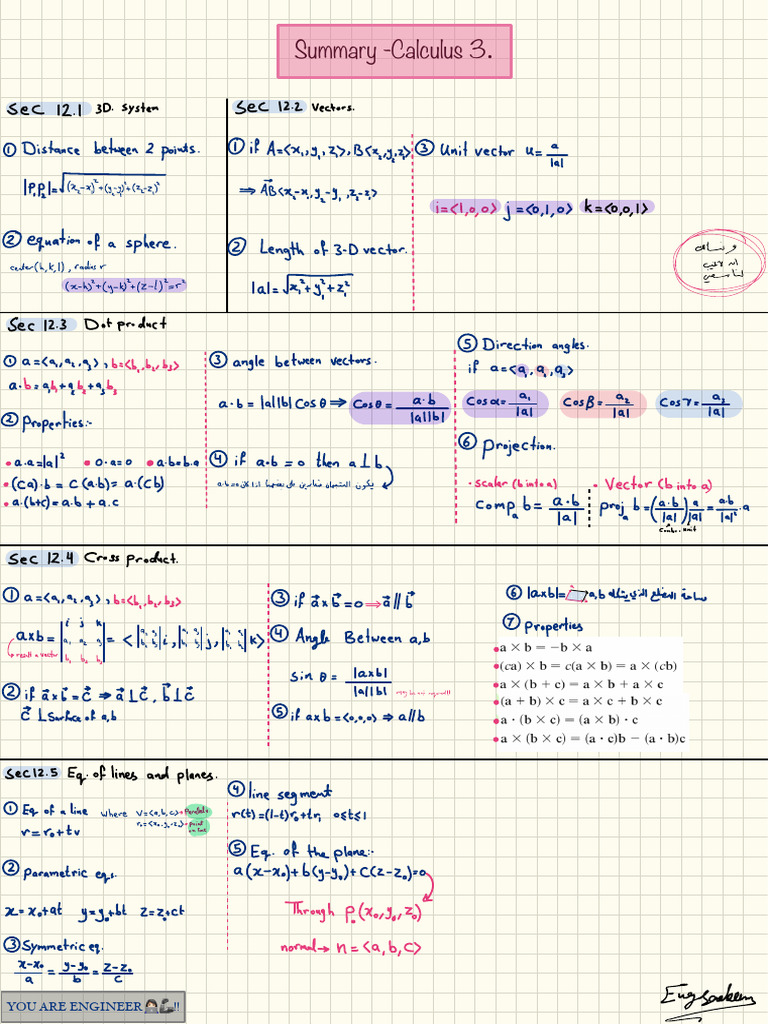 Summary -Calculus 3.
Sec 12.1 3D. system
① Distance between 2 points.
|P₁P₂|=√(x₂-x₁)²+(y₂-y₁)²+(z₂-z₁)²
② equation of a sphere.
center(h,k,l), radius r
(x-h)²+(y-k)²+(z-l)²=r²
Sec 12.2 Vectors.
① if A=<x₁,y₁,z₁>, B<x₂,y₂,z₂>
⇒ AB<x₂-x₁,y₂-y₁,z₂-z₁>
② Length of 3-D vector.
|a|=√x₁²+y₁²+z₁²
③ Unit vector u=a/|a|
i=<1,0,0> j=<0,1,0> k=<0,0,1>
Sec 12.3 Dot product
① a=<a₁,a₂,a₃>, b=<b₁,b₂,b₃>
a·b=a₁b₁+a₂b₂+a₃b₃
② Properties:-
• a·a=|a|² • 0·a=0 • a·b=b·a
• (ca)·b=c(a·b)=a·(cb)
• a·(b+c)=a·b+a·c
③ angle between vectors.
a·b=|a||b|cosθ ⇒ cosθ=a·b/|a||b|
④ if a·b=0 then a⊥b
⑤ Direction angles.
if a=<a₁,a₂,a₃>
cosα=a₁/|a| cosβ=a₂/|a| cosγ=a₃/|a|
⑥ projection.
• scalar (b into a)
comp_a b=a·b/|a|
• Vector (b into a)
proj_a b=(a·b/|a|)a/|a|=a·b/|a|²·a
Sec 12.4 Cross product.
① a=<a₁,a₂,a₃>, b=<b₁,b₂,b₃>
axb=|i j k|
|a₁ a₂ a₃|
|b₁ b₂ b₃|
=<|a₂ a₃|i,|a₁ a₃|j,|a₁ a₂|k>
|b₂ b₃| |b₁ b₃| |b₁ b₂|
result a vector
② if a×b=c ⇒ a⊥c, b⊥c
c⊥surface of a,b
③ if a×b=0 ⇒ a//b
④ Angle Between a,b
sinθ=|axb|/|a||b|
⑤ if axb=<0,0,0> ⇒ a//b
⑥ |axb|= a,b
⑦ properties
• a × b = −b × a
• (ca) × b = c(a × b) = a × (cb)
• a × (b + c) = a × b + a × c
• (a + b) × c = a × c + b × c
• a · (b × c) = (a × b) · c
• a × (b × c) = (a · c)b − (a · b)c
Sec 12.5 Eq. of lines and planes.
① Eq of a line where V=<a,b,c>→Parallel
r₀=<x₀,y₀,z₀>→point on line
r=r₀+tv
② parametric eqs.
x=x₀+at y=y₀+bt z=z₀ct
③ Symmetric eq.
x-x₀/a=y-y₀/b=z-z₀/c
④ line segment
r(t)=(1-t)r₀+tr₁ 0≤t≤1
⑤ Eq. of the plane:-
a(x-x₀)+b(y-y₀)+c(z-z₀)=0
Through P₀(x₀,y₀,z₀)
normal→n=<a,b,c>
YOU ARE ENGINEER !!